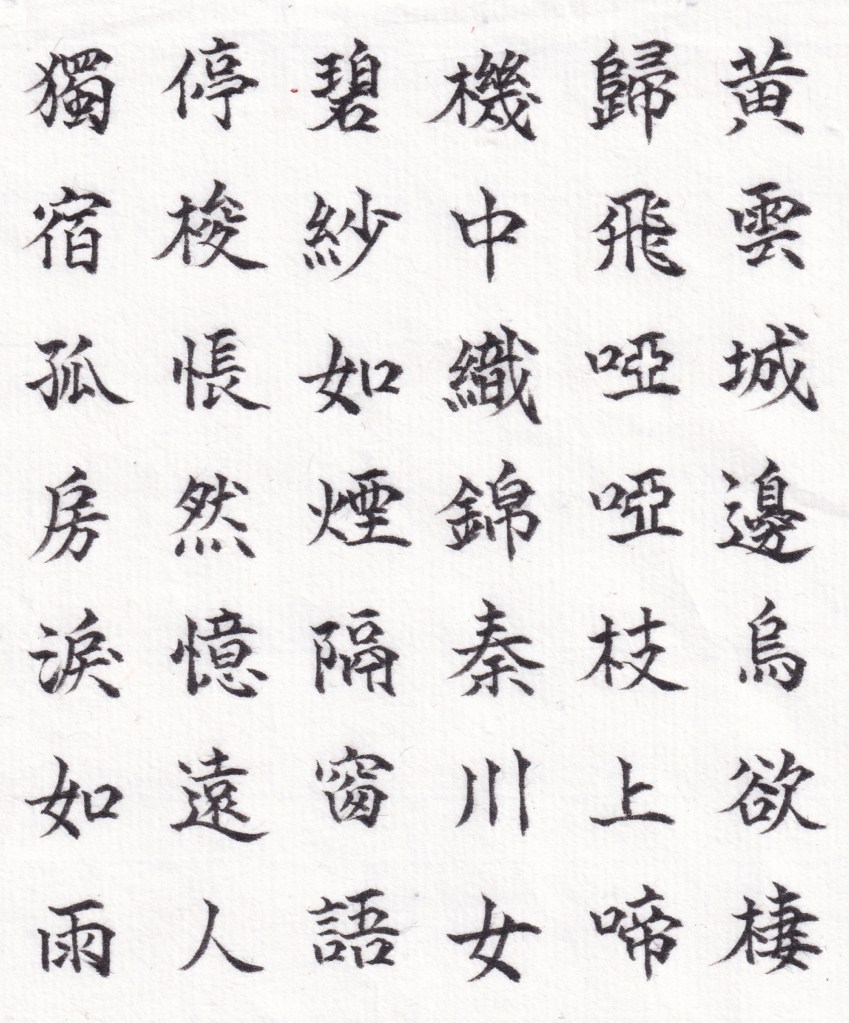 黄雲城邊烏欲棲
歸飛啞啞枝上啼
機中織錦秦川女
碧紗如煙隔窗語
停梭悵然憶遠人
獨宿孤房淚如雨